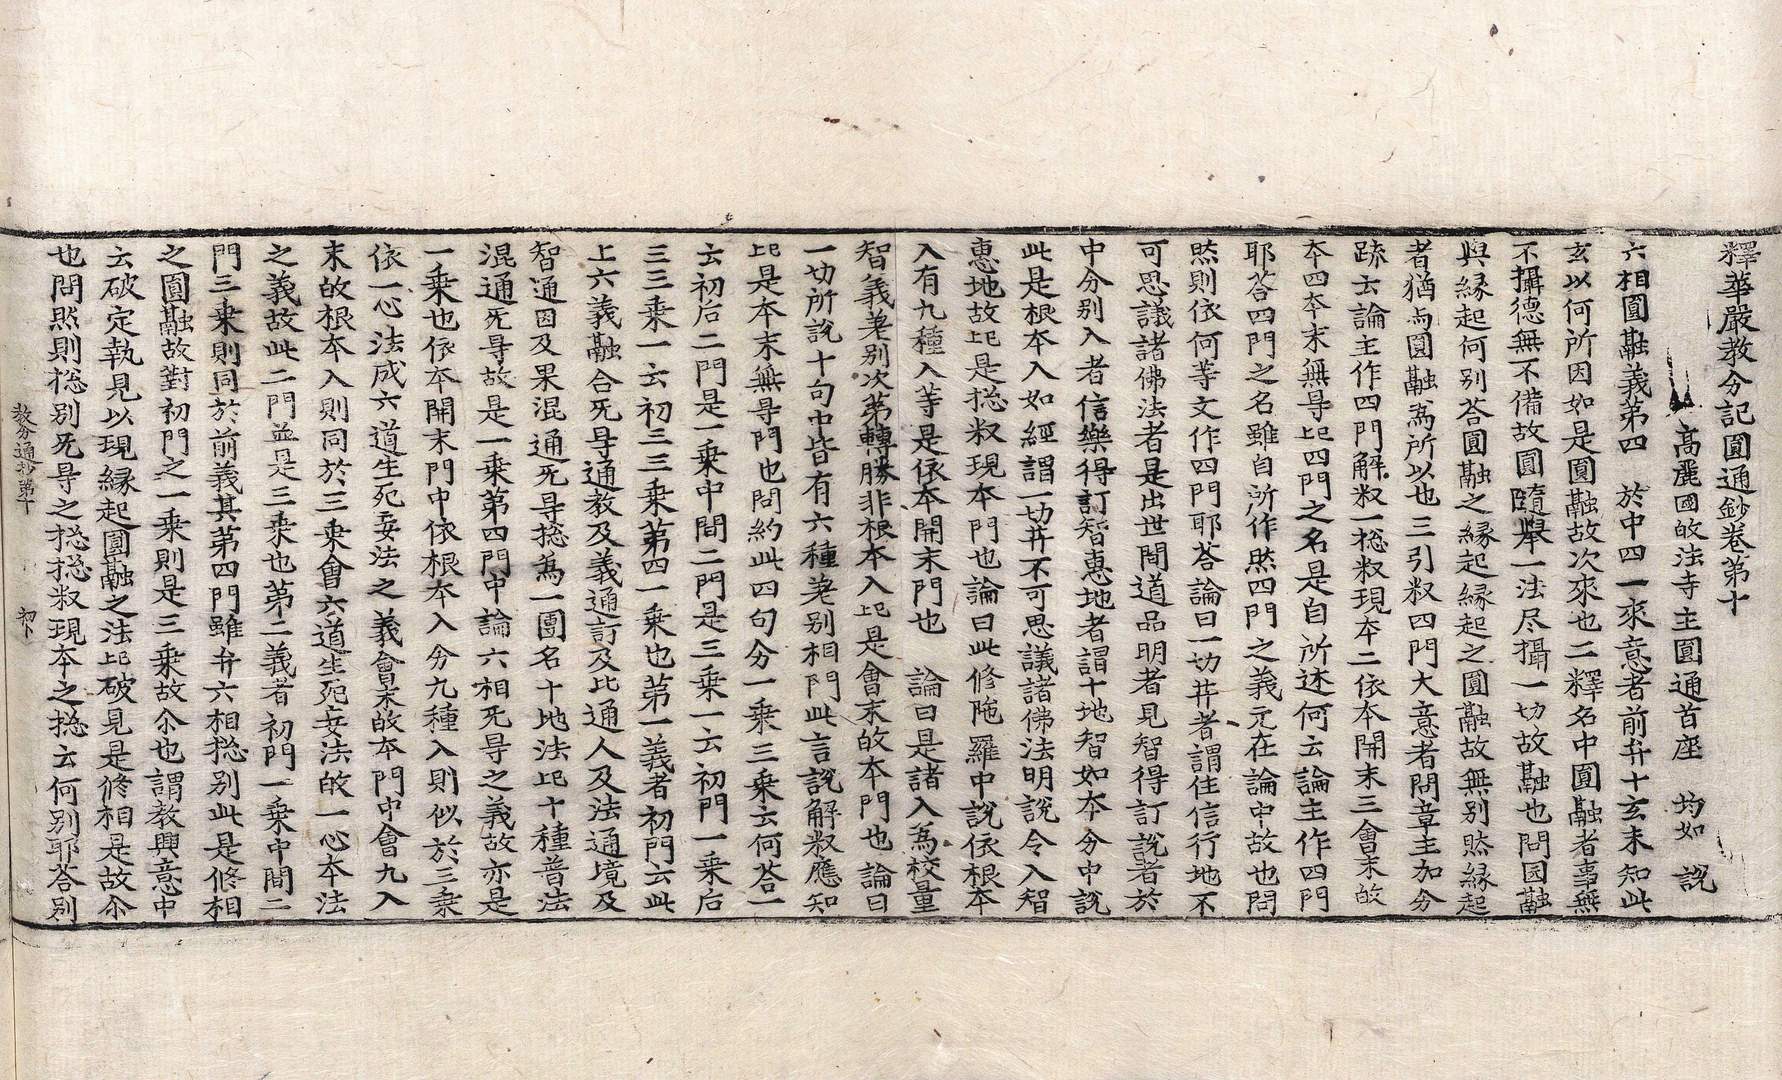 釋華嚴教分記圓通鈔卷第十
高麗國㱕法寺主圓通首座 均如 說
六相圓融義第四 於中四一來意者前弁十玄未知此
玄以何所因如是圓融故次來也二釋名中圓融者事無
不攝德無不備故圓隨舉一法尽攝一切故融也問圓融
與縁起何别荅圓融之縁起縁起之圓融故無别然縁起
者猶与圓融為所以也三引叙四門大意者問章主加分
䟽云論主作四門解叙一捴叙現夲二依夲開末三會末㱕
夲四夲末無导此四門之名是自所述何云論主作四門
耶荅四門之名雖自所作然四門之義元在論中故也問
然則依何等文作四門耶荅論曰一切茾者謂住信行地不
可思議諸佛法者是出世間道品明者見智得訂說者於
中分别入者信樂得訂智惠地者謂十地智如夲分中說
此是根夲入如經謂一切茾不可思議諸佛法明說令入智
惠地故此是捴叙現夲門也論曰此修陁羅中說依根夲
入有九種入等是依夲開末門也 論曰是諸入為校量
智義差别次第轉勝非根夲入此是會末㱕夲門也論曰
一切所說十句中皆有六種差别相門此言說解叙應知
此是夲末無导門也問約此四句分一乗三乗云何荅一
云初后二門是一乗中間二門是三乗一云初門一乗后
三三乗一云初三三乗第四一乗也第一義者初門六此
上六義融合无导通教及義通訂及比通人及法通境及
智通因及果混通无导捴為一團名十地法此十種普法
混通无导故是一乗第四門中論六相无导之義故亦是
一乗也依夲開末門中依根夲入分九種入則似於三乗
依一心法成六道生死妄法之義會末㱕夲門中會九入
末㱕根夲入則同於三乗會六道生死妄法㱕一心夲法
之義故此二門並是三乗也第二義者初門一乗中間二
門三乗則同於前義其第四門雖弁六相捴别此是修相
之圓融故對初門之一乗則是三乗故尒也謂教興意中
云破定執見以現縁起圓融之法此破見是修相是故尒
也問然則捴别无导之捴捴叙現夲之捴云何别耶荅别
教分通抄第十 初卜